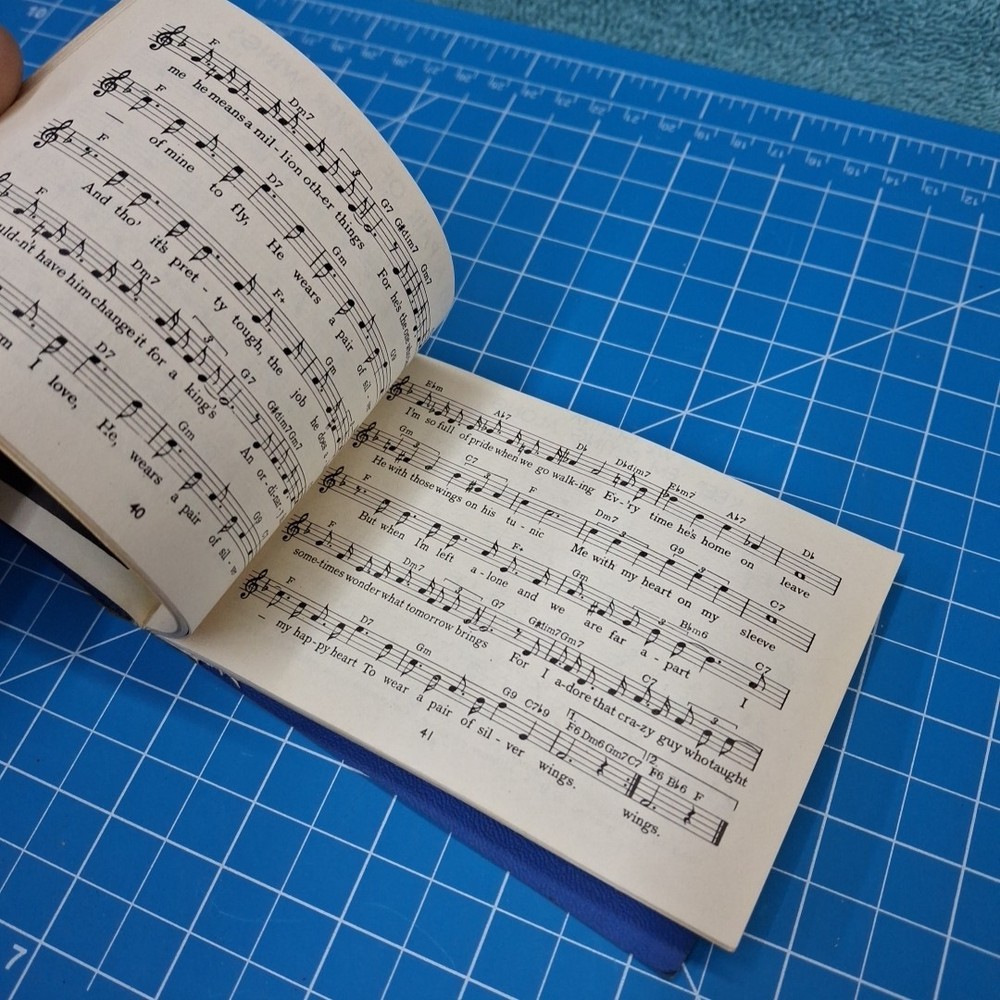 F Dm7 3 G7 G#dim7 Gm7
me he means a mil-lion oth-er things For he's the
F D7 Gm G9
of mine to fly, He wears a pair of sil -
F F+ Gm
And tho' it's pret - ty tough, the job he does
F Dm7 3 G7 G#dim7 Gm7
have him change it for a king's An or-di-nar-
D7 Gm G9
I love, He wears a pair of sil -
40
Ebm Ab7 Db Dbdim7 Ebm7 Ab7 Db
I'm so full of pride when we go walk-ing Ev-'ry time he's home on leave
Gm 3 C7 3 F Dm7 3 G9 3 C7
He with those wings on his tu - nic Me with my heart on my sleeve
F F+ Gm Bbm6 C7
But when I'm left a - lone and we are far a - part I
F Dm7 3 G7 G#dim7 Gm7 C7 3
some-times wonder what tomorrow brings For I a-dore that cra-zy guy who taught
F D7 Gm G9 C7b9 1. F6 Dm6 Gm7 C7 2. F6 Bb6 F
my hap-py heart To wear a pair of sil - ver wings. wings.
41
7